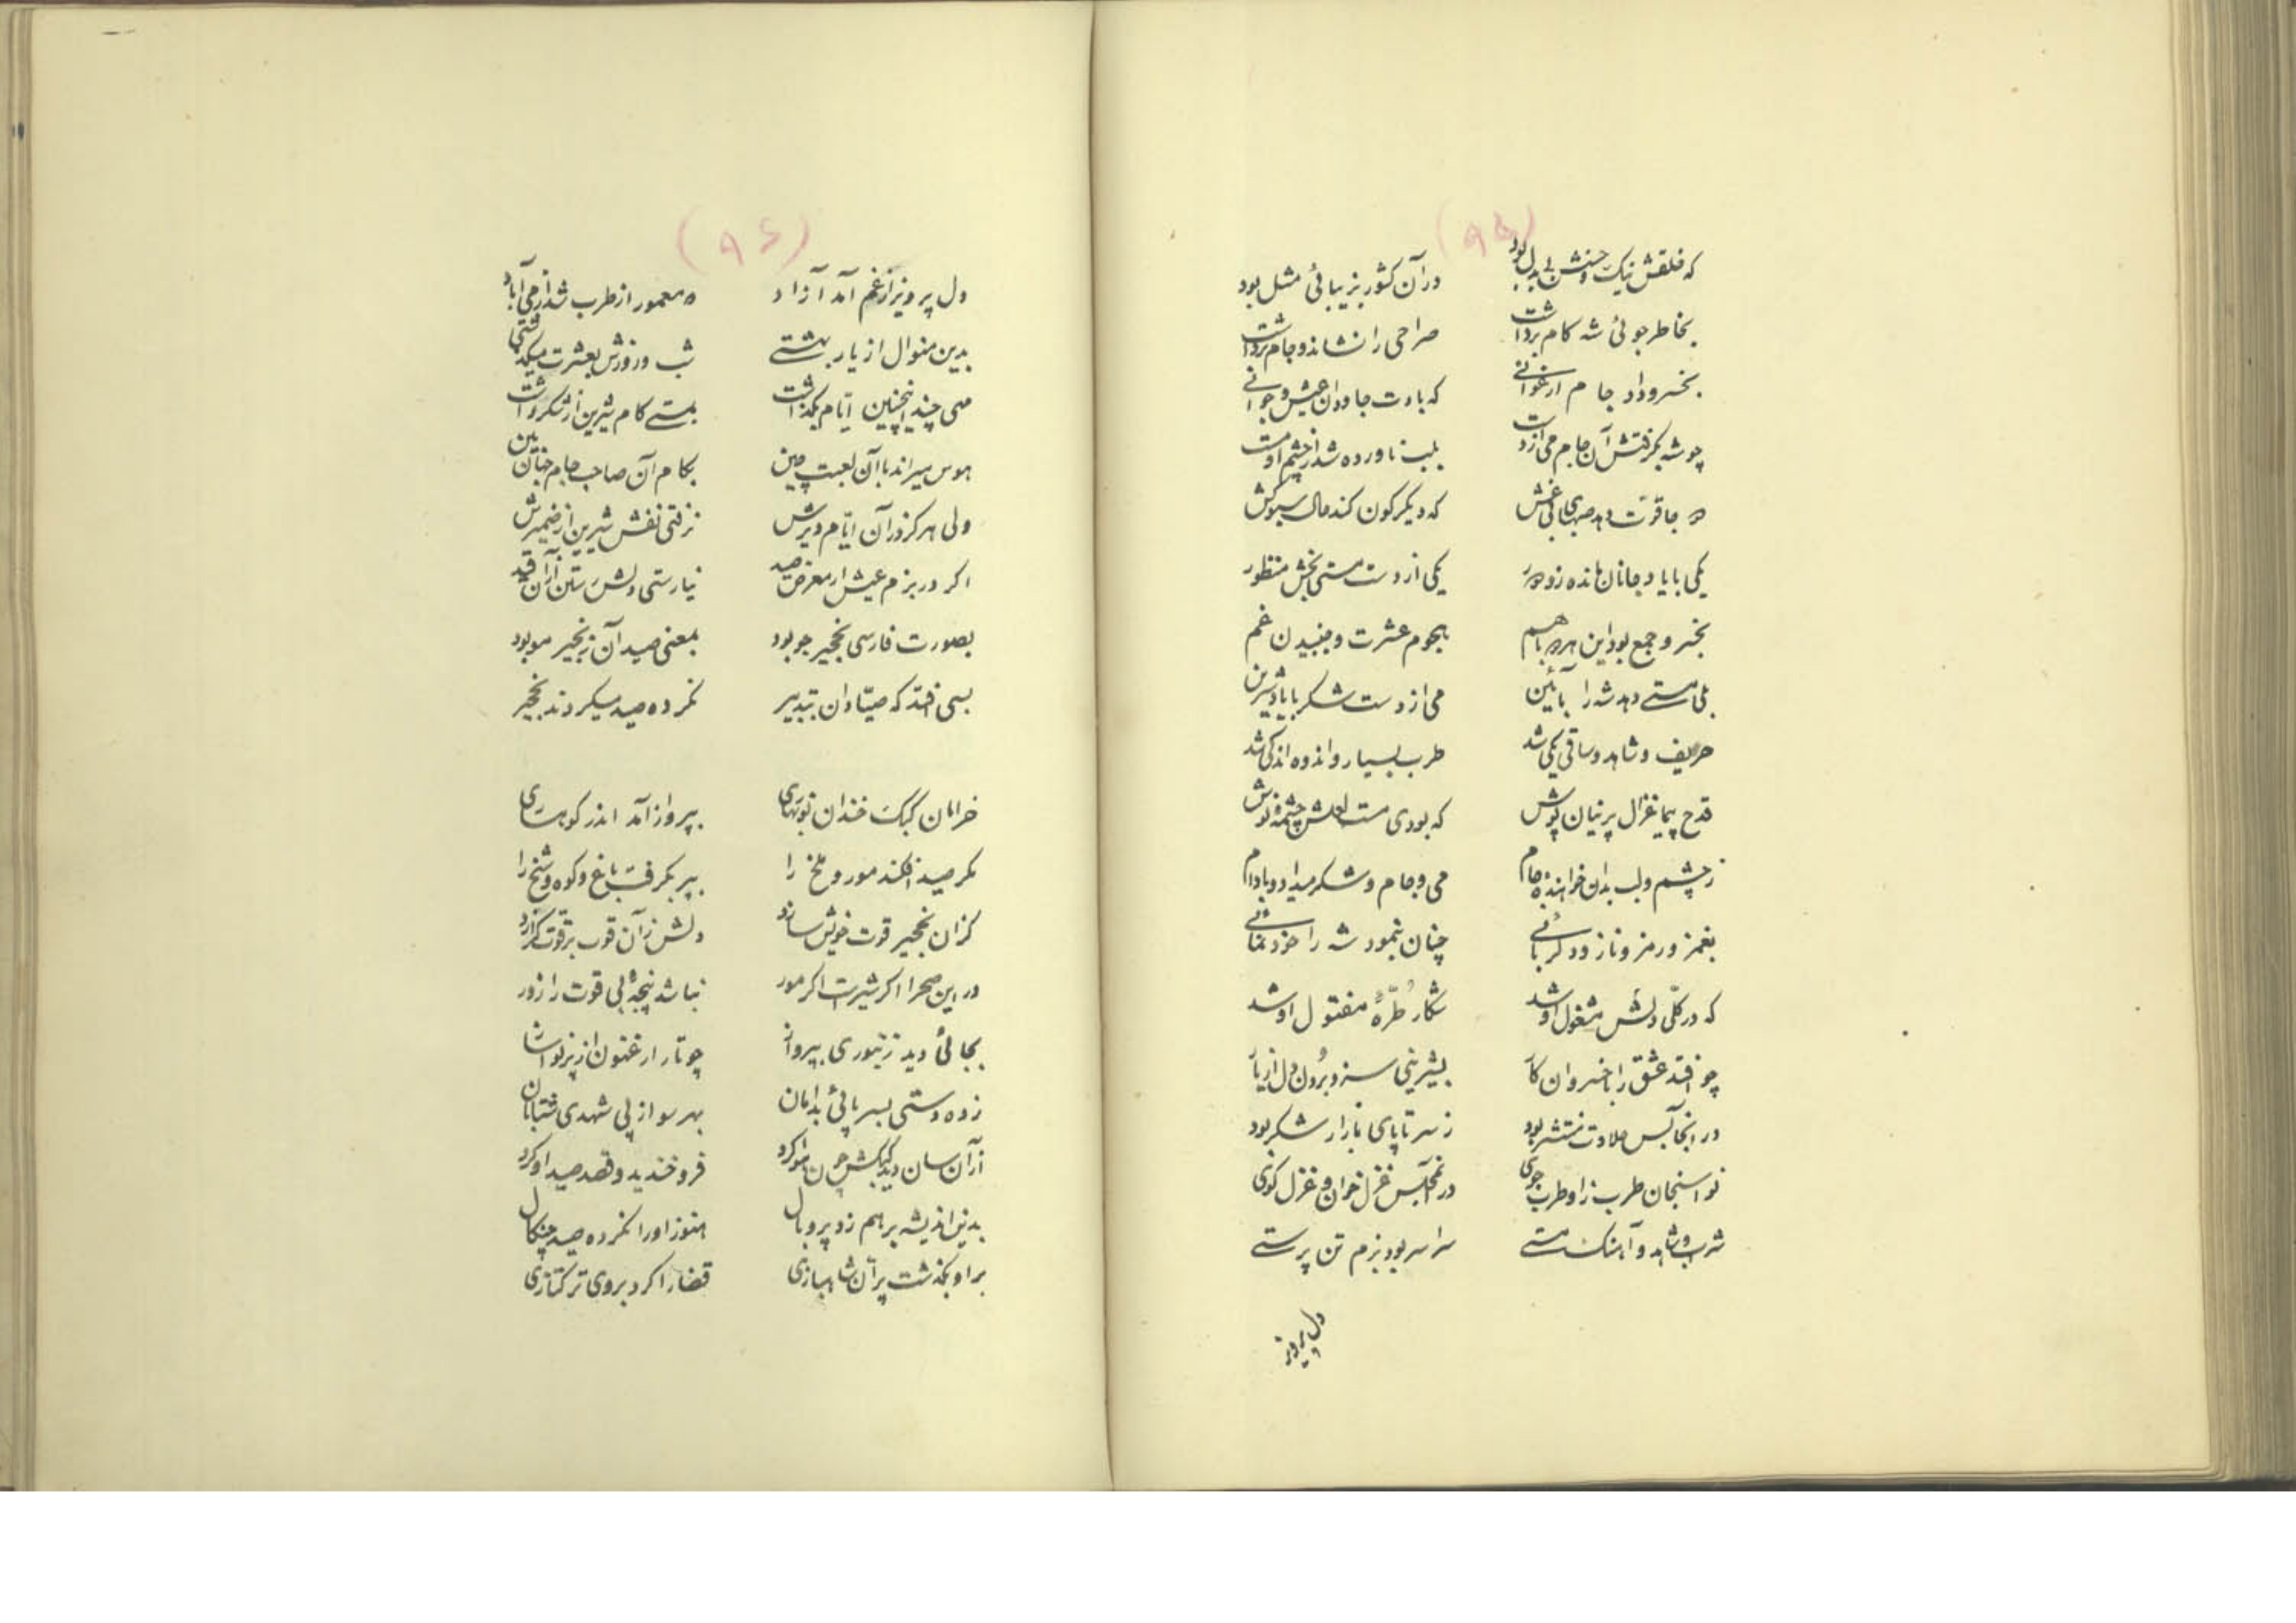 (۹۵)
که خلقش نیک و حسنش بی بدل بود درآن کشور بزیبائی مثل بود
بخاطر جوئی شه کام برداشت صراحی را نشاند و جام برداشت
بخسرو داد جام ارغوانے که بادت جاودان عیش و جوانے
چو شه بگرفتش آن جام می از دست بلب ناورده شد از چشم او مست
دو جا قوت دهد صهبای بیغش که دیگرکون کند حال سبوکش
یکی با یاد جانان مانده زو دور یکی از دست مستی بخش منظور
بخسرو جمع بود این هر دو باهم هجوم عشرت و جنبیدن غم
بلی مستے دهد شه را بآئین می از دست شکر با یاد شیرین
حریف و شاهد و ساقی یکی شد طرب بسیار و اندوه اندکی شد
قدح پیما غزال پرنیان پوش که بودی مست لعلش چشمه نوش
ز چشم و لب بدان خواهنده جام می و جام و شکر میداد و بادام
بغمز و رمز و ناز و دلربائے چنان بنمود شه را خودنمائے
که در کلّی دلش مشغول او شد شکار طرّهٔ مفتول او شد
چو افتد عشق را با خسروان کار بشیرینی سزد بردن دل از یار
در آنجا بس حلاوت منتشر بود ز سر تا پای بازار شکر بود
نواسنجان طرب زا و طرب جوی در آنمجلس غزل خوان و غزل کوی
شراب و شاهد و آهنک مستے سراسر بود بزم تن پرستے
دل پرویز
(۹۶)
دل پرویز از غم آمد آزاد ده معمور از طرب شد از می آباد
بدین منوال از یار بهشتے شب و روزش بعشرت میکذشتی
مهی چند اینچنین ایّام بکذاشت بمستے کام شیرین از شکر داشت
هوس میراند با آن لعبت چین بکام آن صاحب جام جهان بین
ولی هرکز در آن ایّام دیرش نرفتی نقش شیرین از ضمیرش
اکر در بزم عیش ار معرض صید نیارستی دلش رستن از آن قید
بصورت فارسی نخجیر جو بود بمعنی صید آن زنجیر مو بود
بسی افتد که صیّادان بتدبیر نمرده صید میکردند نخجیر
خرامان کبک خندان نوبهاری بپرواز آمد اندر کوهساری
مکر صید افکند مور و ملخ را بپر بکرفت باغ و کوه و شخ را
کزان نخجیر قوت خویش سازد دلش زآن قوت بر قوت کرازد
در این صحرا اکر شیر است اکر مور نباشد پنجهٔ بی قوت را زور
بجائی دید زنبوری بپرواز چو تار ارغنون از زیر نوا ساز
زده دستی بسر پائی بدامان بهر سو از پی شهدی شتابان
از آن سان دید کبکش چون هوا کرد فرو خندید و قصد صید او کرد
بدین اندیشه بر هم زد پر و بال هنوز او را نکرده صید چنکال
بر او بکذشت پرّان شاهبازی قضا را کرد بر وی ترکتازی